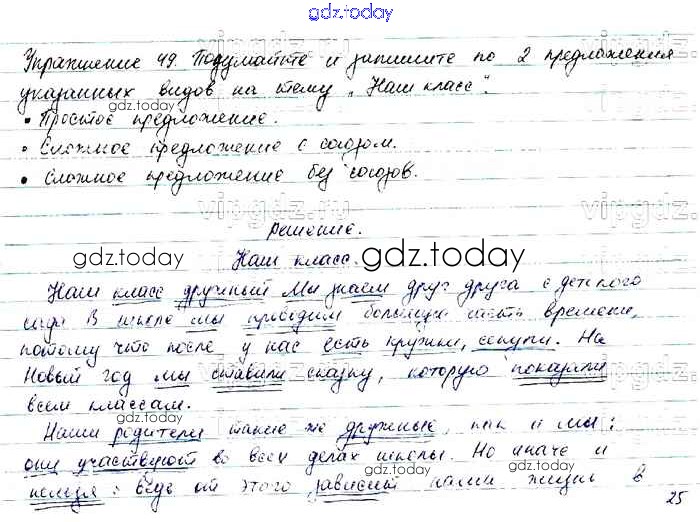 gdz.today
Упражнение 49. Подумайте и запишите по 2 предложения
указанных видов на тему „Наш класс".
gdz.today
gdz.today
• Простое предложение.
• Сложное предложение с союзом.
• Сложное предложение без союзов.
vipgdz.ru
vipgdz.ru
Решение.
gdz.today
gdz.today
Наш класс.
Наш класс дружный Мы знаем друг друга с детского
сада В школе мы проводим большую часть времени,
потому что после у нас есть кружки, секции. На
Новый год мы ставили сказку, которую показали
всем классам.
Наши родители такие же дружные, как и мы:
они участвуют во всех делах школы. Но иначе и
нельзя: ведь от этого зависит наша жизнь в
gdz.today
gdz.today
25